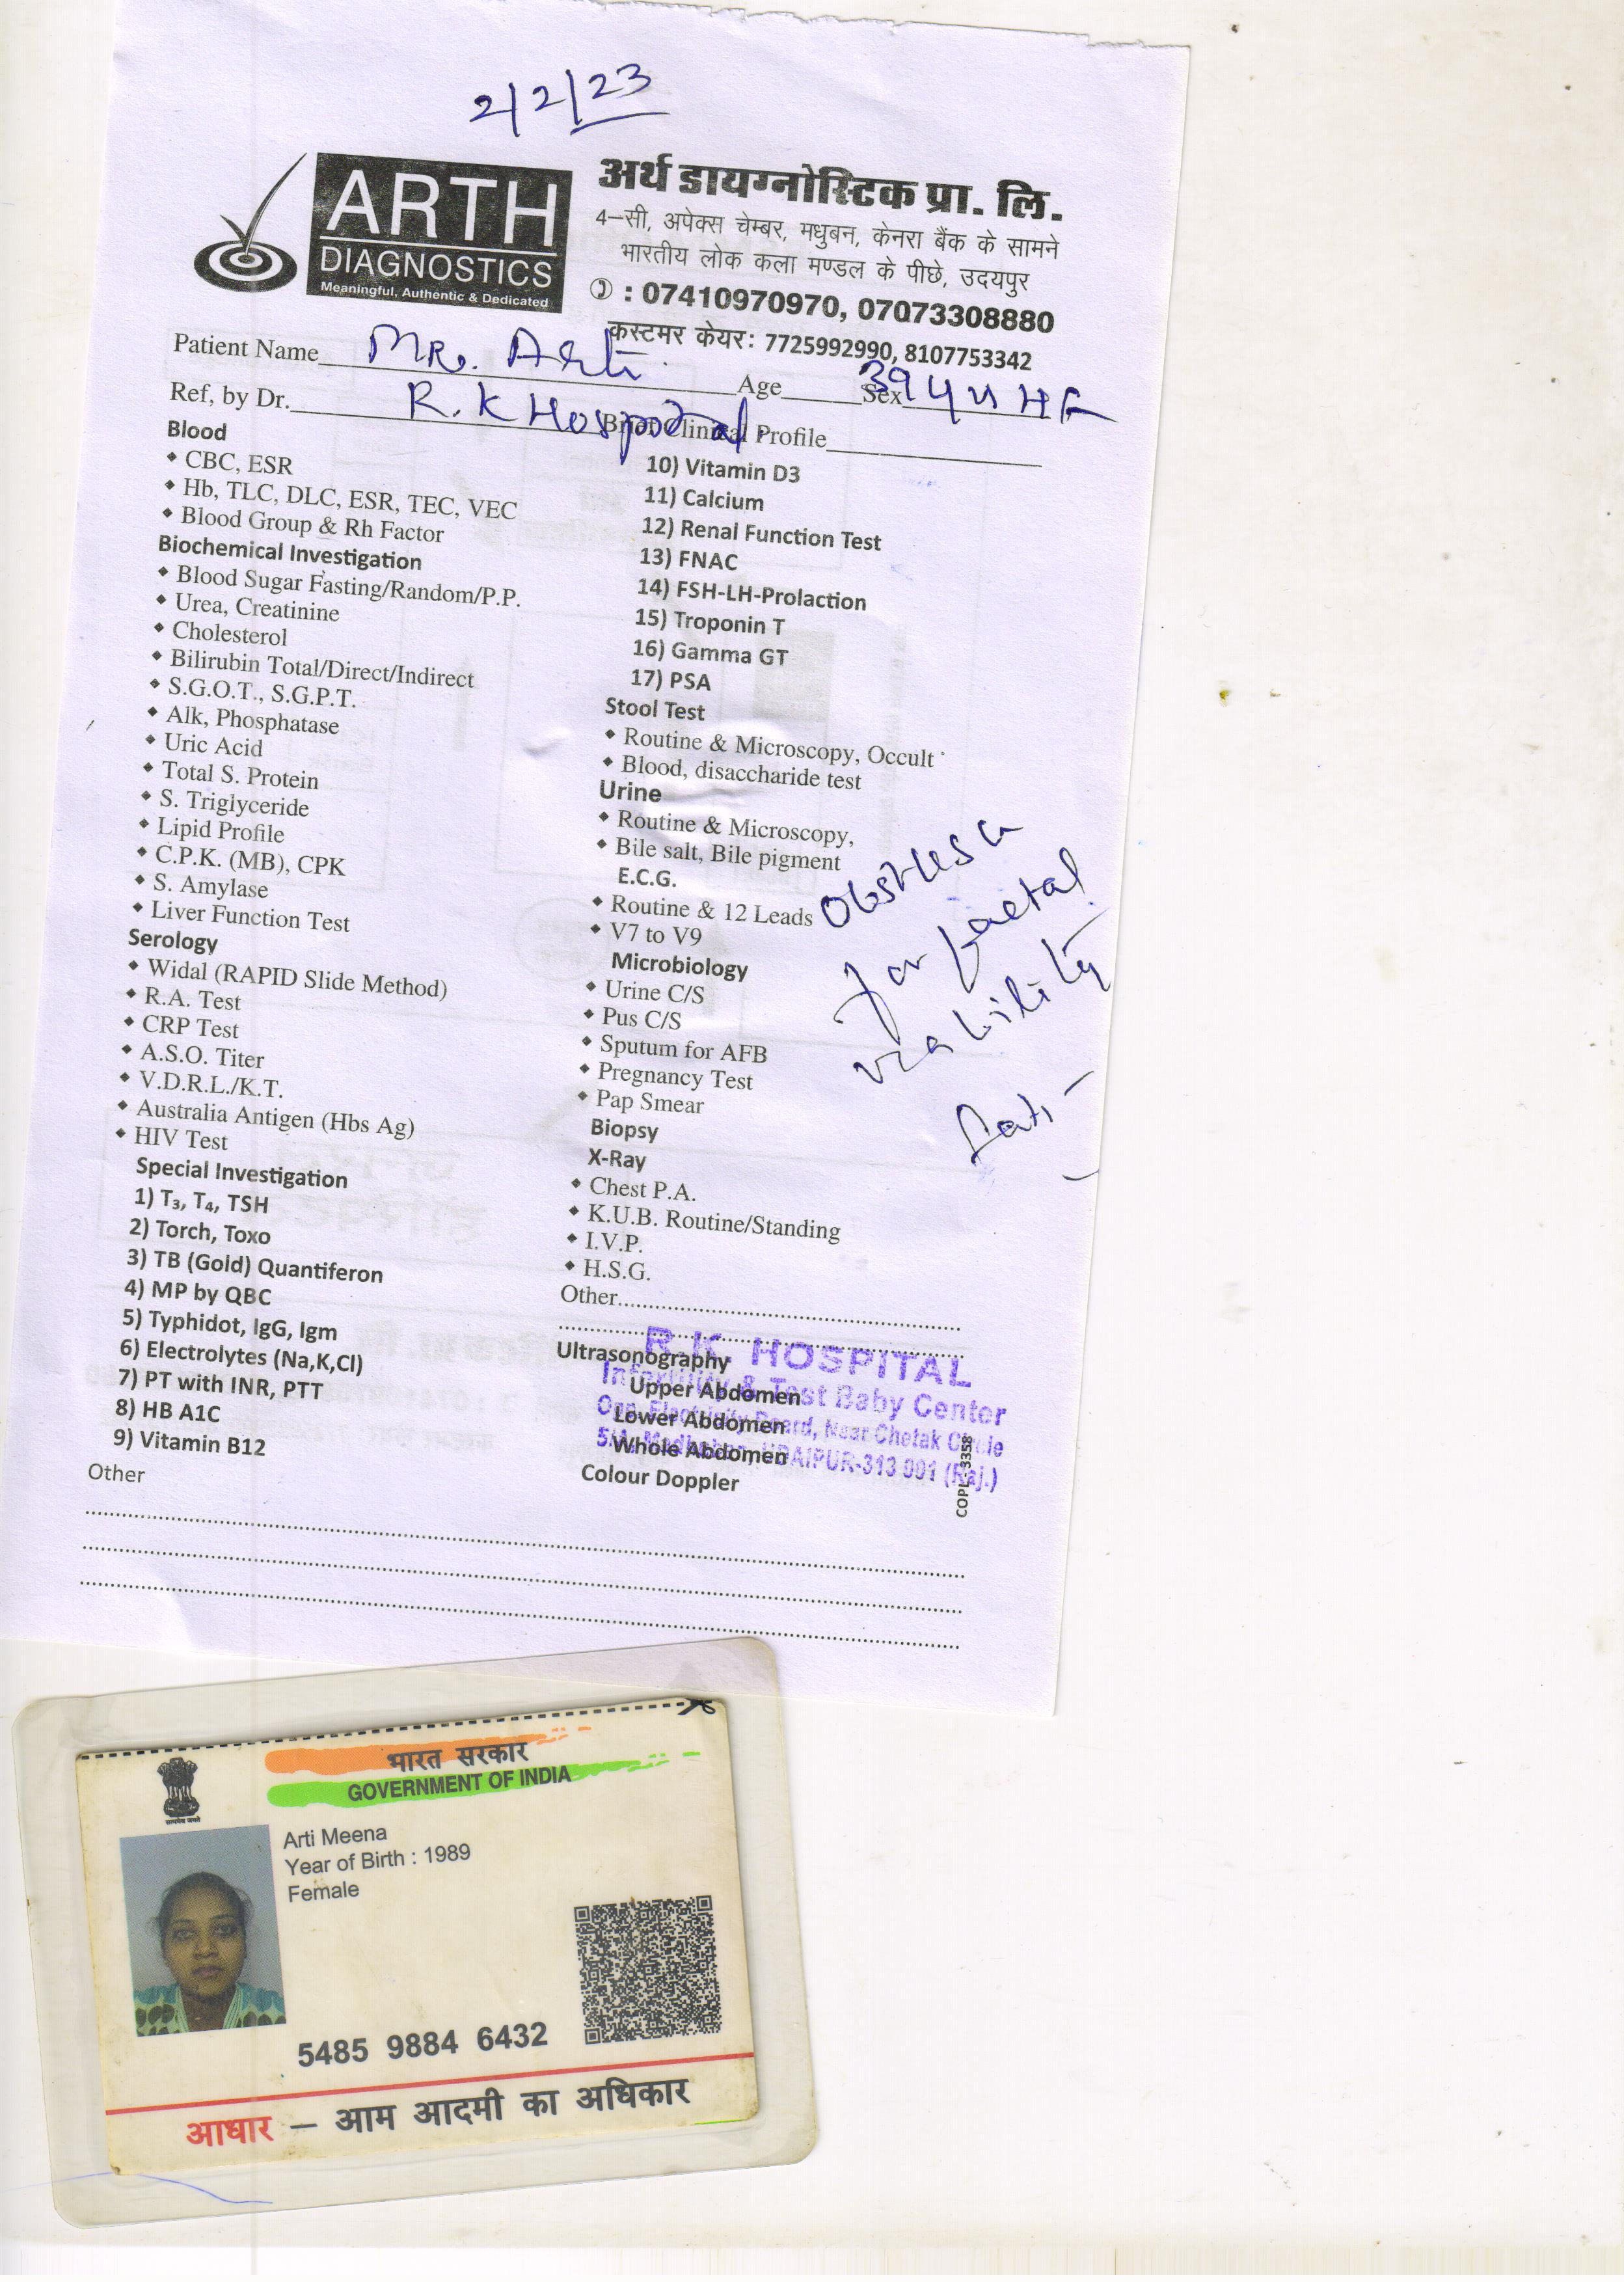 2/2/23
ARTH
DIAGNOSTICS
Meaningful, Authentic & Dedicated
अर्थ डायग्नोस्टिक प्रा. लि.
4–सी, अपेक्स चेम्बर, मधुबन, केनरा बैंक के सामने
भारतीय लोक कला मण्डल के पीछे, उदयपुर
: 07410970970, 07073308880
कस्टमर केयर: 7725992990, 8107753342
Patient Name MR. Arti Age Sex 39
Ref, by Dr. R.K Hospital Brief Clinical Profile
Blood
CBC, ESR
Hb, TLC, DLC, ESR, TEC, VEC
Blood Group & Rh Factor
Biochemical Investigation
Blood Sugar Fasting/Random/P.P.
Urea, Creatinine
Cholesterol
Bilirubin Total/Direct/Indirect
S.G.O.T., S.G.P.T.
Alk, Phosphatase
Uric Acid
Total S. Protein
S. Triglyceride
Lipid Profile
C.P.K. (MB), CPK
S. Amylase
Liver Function Test
Serology
Widal (RAPID Slide Method)
R.A. Test
CRP Test
A.S.O. Titer
V.D.R.L./K.T.
Australia Antigen (Hbs Ag)
HIV Test
Special Investigation
1) T₃, T₄, TSH
2) Torch, Toxo
3) TB (Gold) Quantiferon
4) MP by QBC
5) Typhidot, IgG, Igm
6) Electrolytes (Na,K,Cl)
7) PT with INR, PTT
8) HB A1C
9) Vitamin B12
Other
10) Vitamin D3
11) Calcium
12) Renal Function Test
13) FNAC
14) FSH-LH-Prolaction
15) Troponin T
16) Gamma GT
17) PSA
Stool Test
Routine & Microscopy, Occult
Blood, disaccharide test
Urine
Routine & Microscopy,
Bile salt, Bile pigment
E.C.G.
Routine & 12 Leads
V7 to V9
Microbiology
Urine C/S
Pus C/S
Sputum for AFB
Pregnancy Test
Pap Smear
Biopsy
X-Ray
Chest P.A.
K.U.B. Routine/Standing
I.V.P.
H.S.G.
Other
Ultrasonography
Upper Abdomen
Lower Abdomen
Whole Abdomen
Colour Doppler
for faetal
viability
R.K. HOSPITAL
Infertility & Test Baby Center
Opp. Electricity Board, Near Chetak Circle
5/A, Madhuban, UDAIPUR-313 001 (Raj.)
COPL-3358
भारत सरकार
GOVERNMENT OF INDIA
सत्यमेव जयते
Arti Meena
Year of Birth : 1989
Female
5485 9884 6432
आधार – आम आदमी का अधिकार